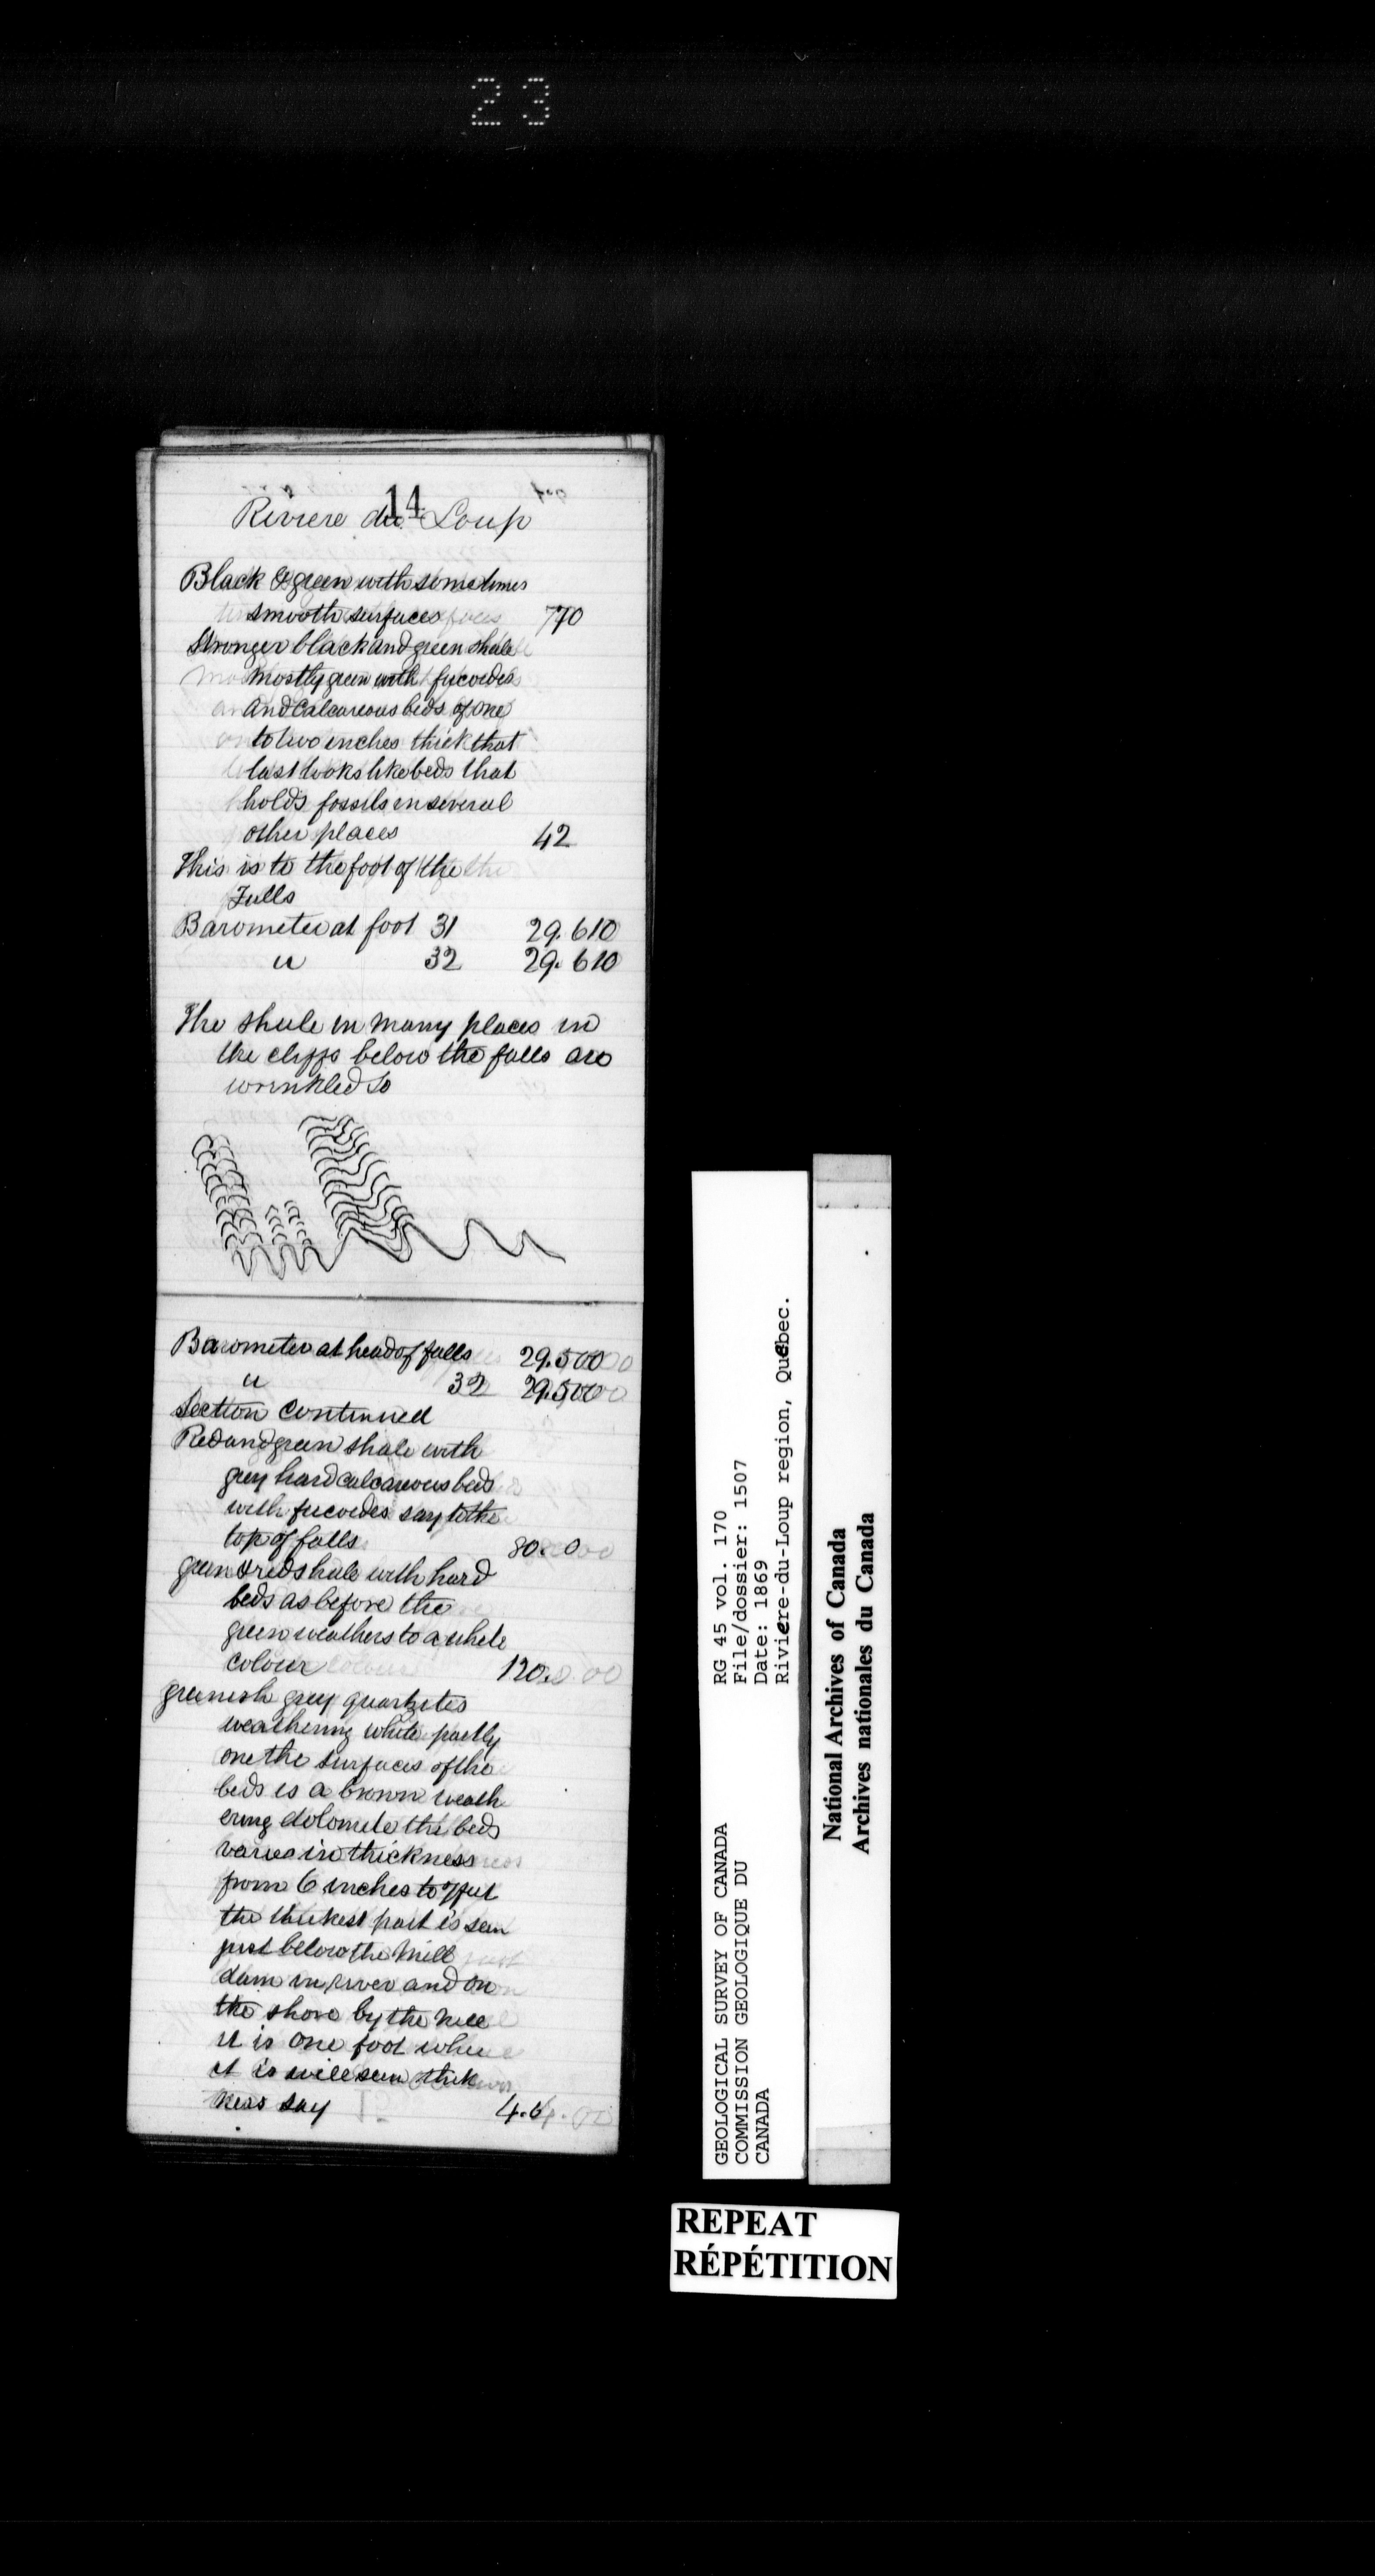 23
14
Riviere du Loup
Black & green with sometimes
smooth surfaces 770
Stronger black and green shale
mostly green with fucoides
and calcareous beds of one
to two inches thick that
last looks like beds that
holds fossils in several
other places 42
This is to the foot of the
Falls
Barometer at foot 31 29.610
" 32 29.610
The shale in many places in
the cliffs below the falls are
wrinkled so
Barometer at head of falls 29.500
" 32 29.500
Section continued
Red and green shale with
grey hard calcareous beds
with fucoides say to the
top of falls 80.0
green & red shale with hard
beds as before the
green weathers to a white
colour 120.0
greenish grey quartzites
weathering white partly
one the surfaces of the
beds is a brown weath
ering dolomite the beds
varies in thickness
from 6 inches to 7 feet
the thickest part is seen
just below the mill
dam in river and on
the shore by the mill
it is one foot where
it is well seen thick
ness say 4.6
GEOLOGICAL SURVEY OF CANADA
COMMISSION GEOLOGIQUE DU
CANADA
RG 45 vol. 170
File/dossier: 1507
Date: 1869
Rivière-du-Loup region, Québec.
National Archives of Canada
Archives nationales du Canada
REPEAT
RÉPÉTITION